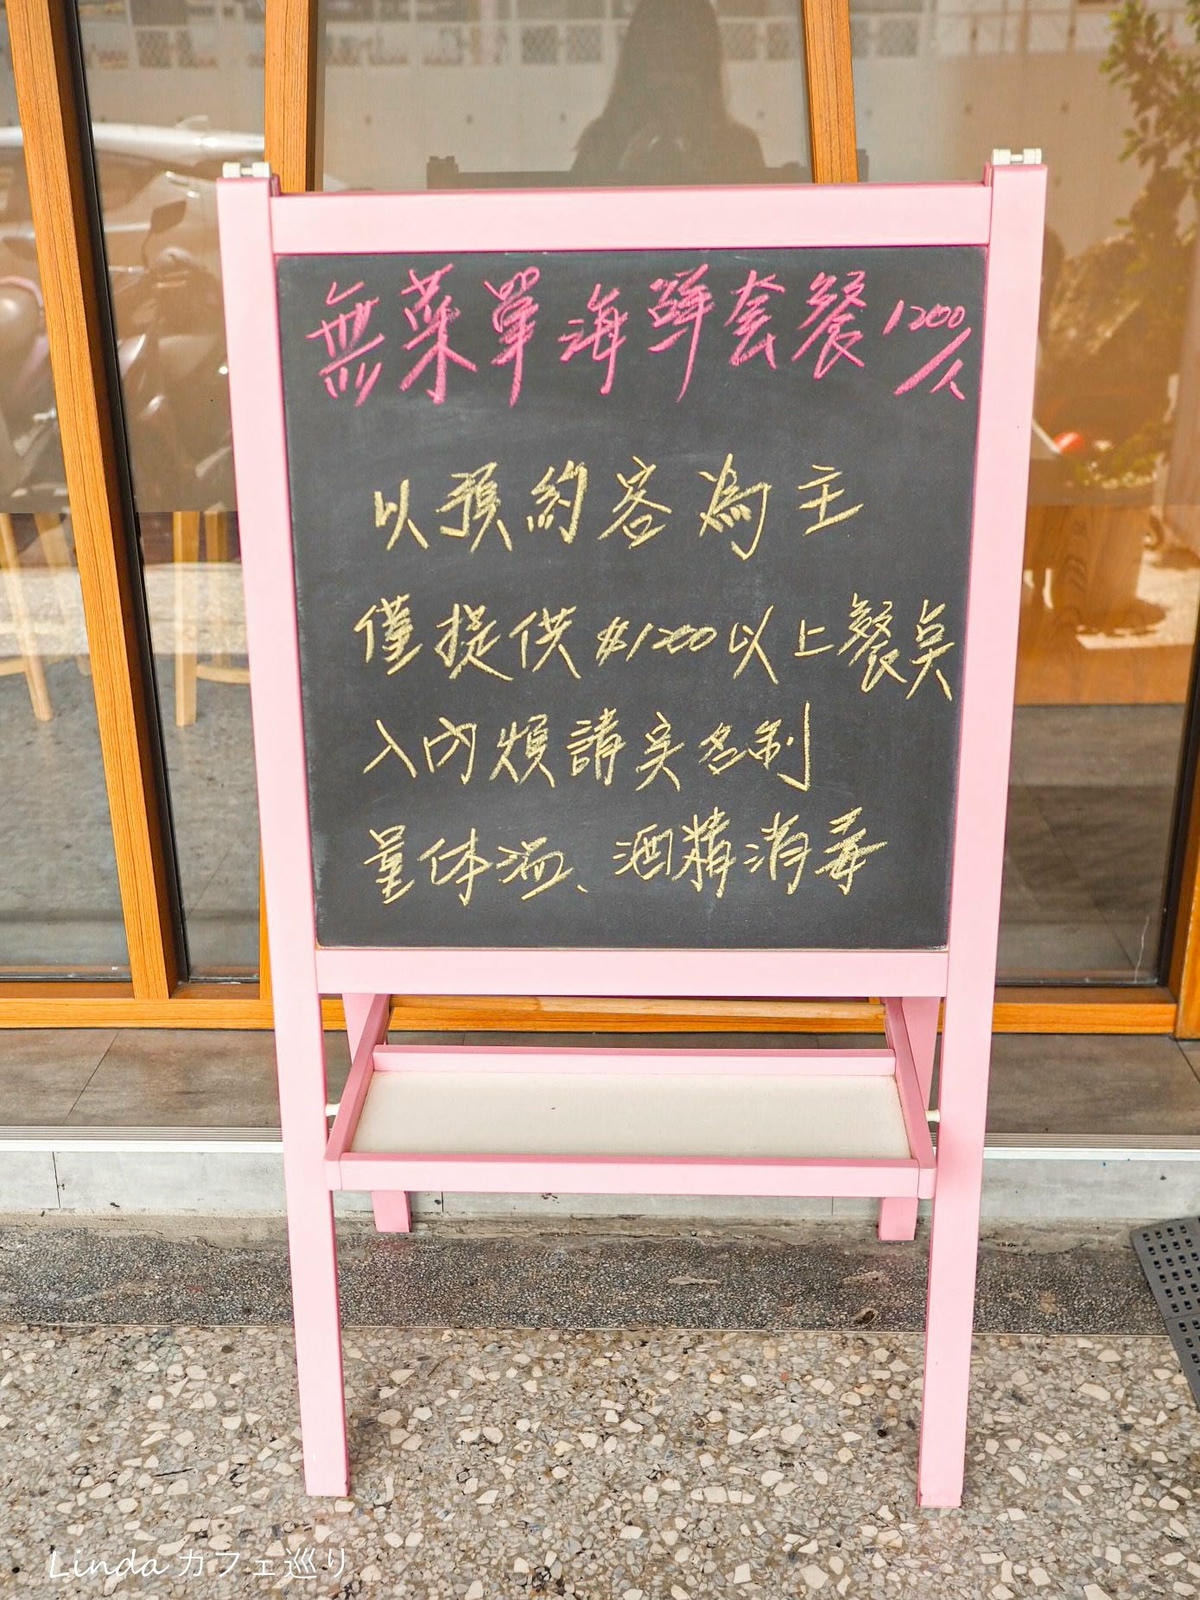 無菜單海鮮套餐1200/人
以預約客為主
僅提供$1200以上餐点
入內煩請实名制
量体溫、酒精消毒
Linda カフェ巡り